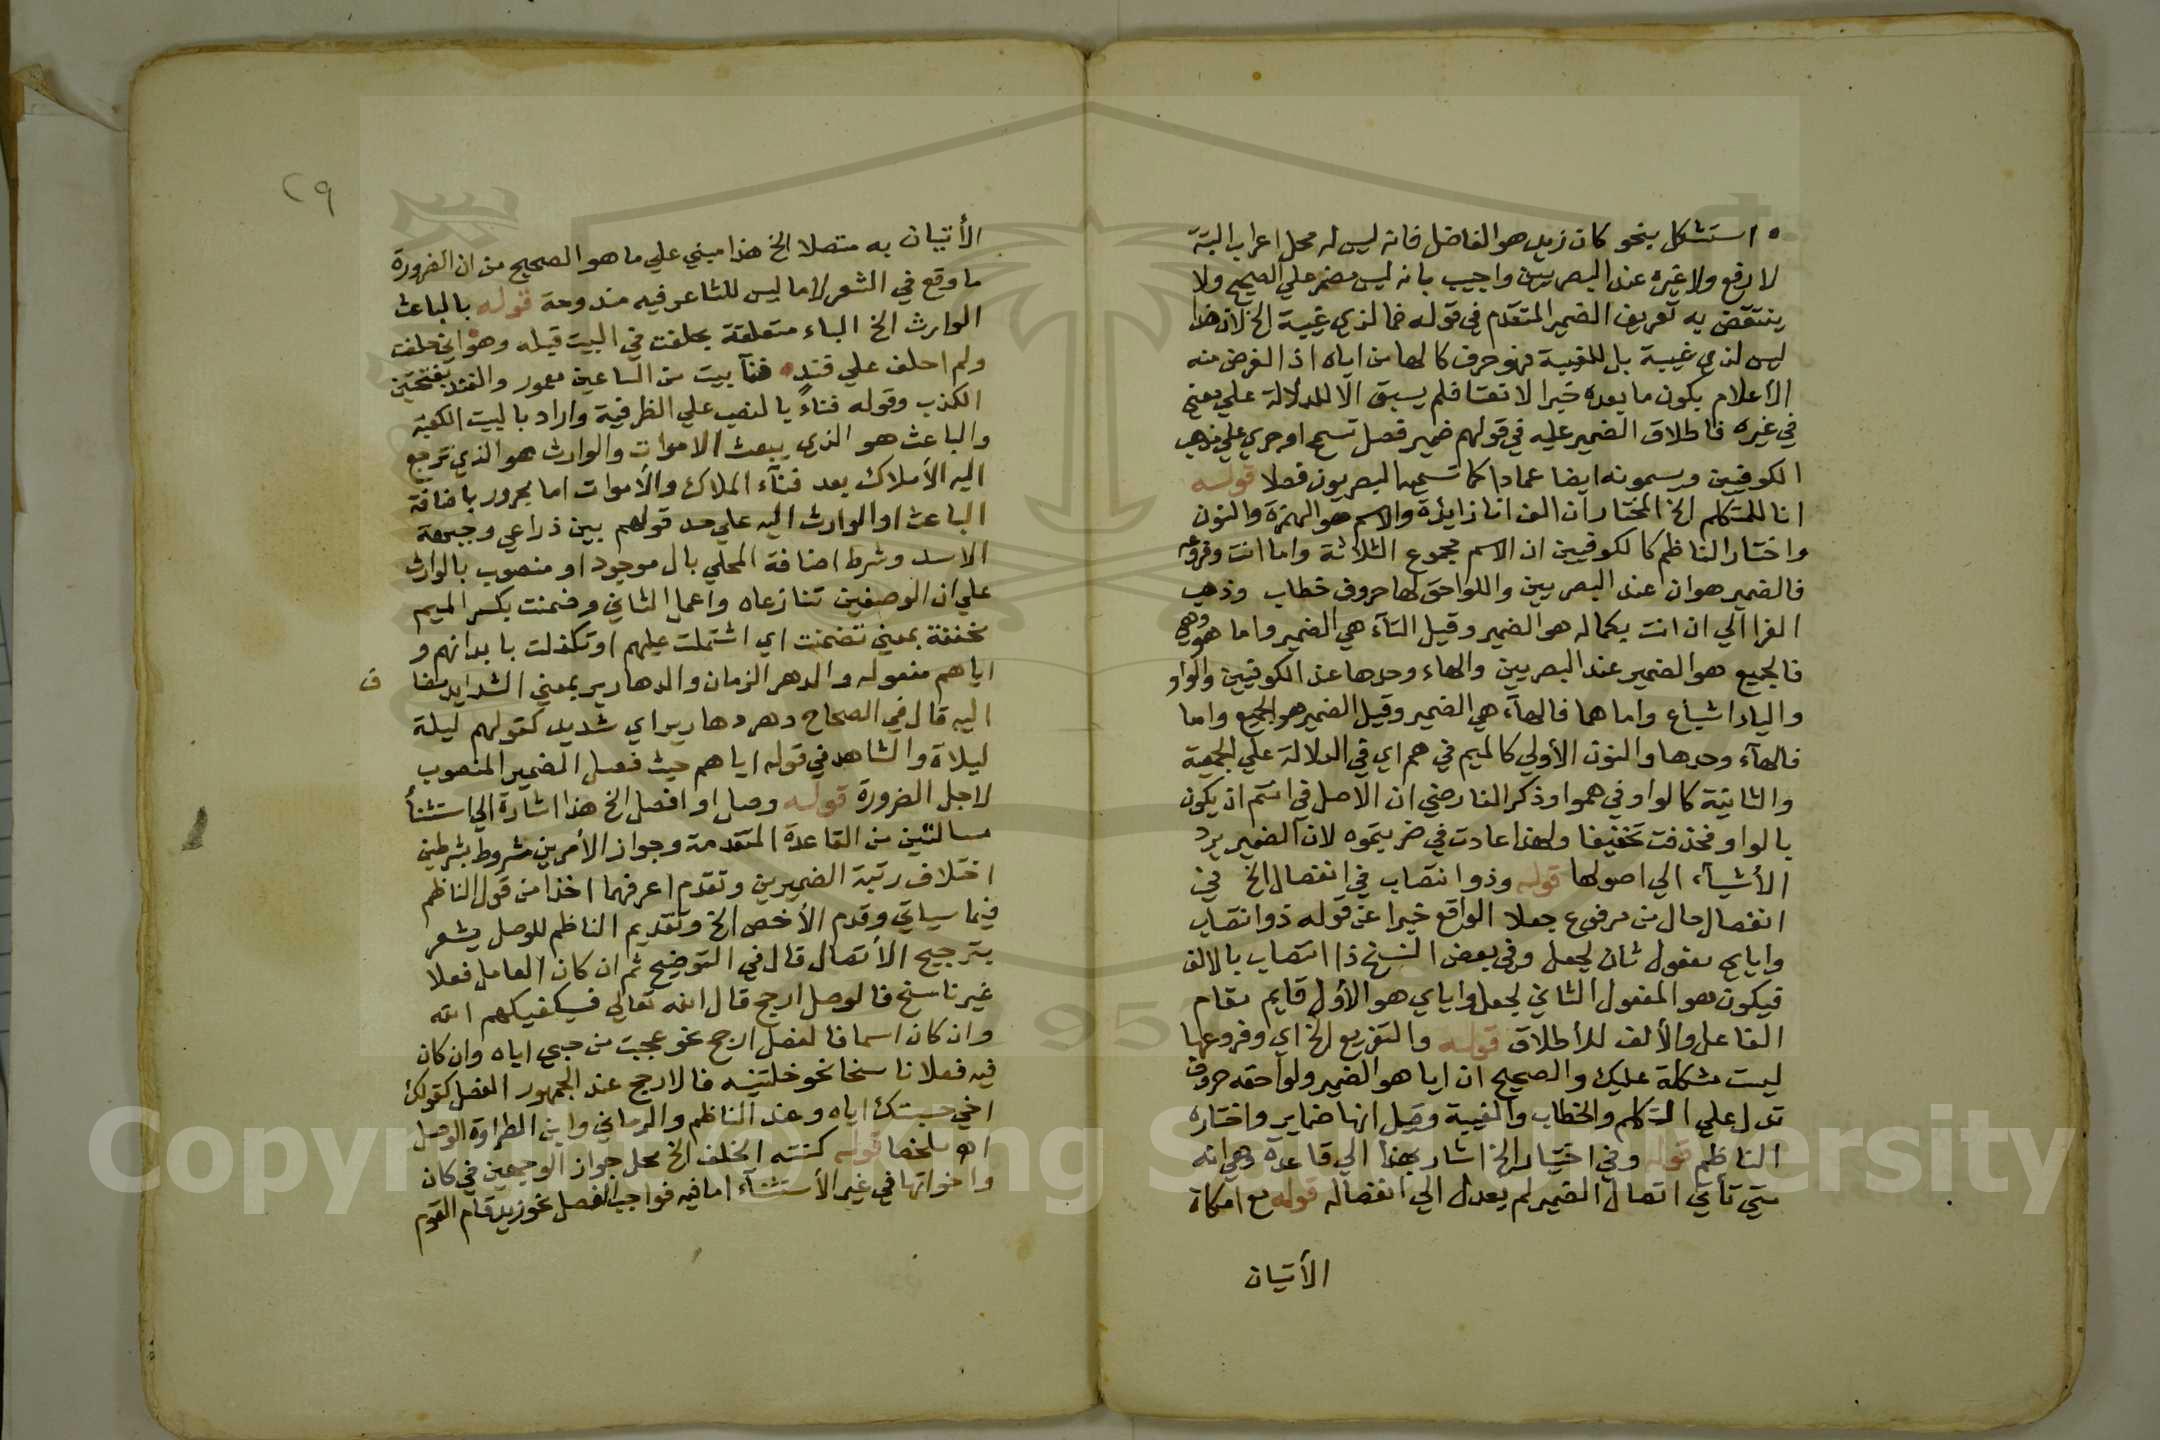 استشكل بنحو كان زيد هو الفاضل فانه ليس له محل اعراب البتة
لا رفع ولا غيره عند البصريين واجيب بانه ليس مضمر علي الصحيح ولا
ينتقض به تعريف الضمير المتقدم في قوله فما لذي غيبة الخ لان هذا
ليس لذي غيبة بل للغيبة فهو حرف كالها من اياه اذ الغرض منه
الأعلام بكون ما بعده خبرا لا نعتا فلم يسبق الا للدلالة علي معني
في غيره فاطلاق الضمير عليه في قولهم ضمير فصل تسمح او جري علي مذهب
الكوفيين ويسمونه ايضا عمادا كما تسميه البصريون فصلا قوله
انا للمتكلم الخ المختار ان الف انا زايدة والاسم هو الهمزة والنون
واختار الناظم كالكوفيين ان الاسم مجموع الثلاثة واما انت وفروعه
فالضمير هو ان عند البصريين واللواحق لها حروف خطاب وذهب
الفرا الي ان انت بكماله هو الضمير وقيل التآء هي الضمير واما هو وهي
فالجميع هو الضمير عند البصريين والهاء وحدها عند الكوفيين والواو
واليا اشباع واما هما فالهآء هي الضمير وقيل الضمير هو الجميع واما
فالهآء وحدها والنون الأولي كالميم في هم اي في الدلالة علي الجمعية
والثانية كالواو في همو وذكر الفارضي ان الاصل في انتم ان يكون
بالواو فحذفت تخفيفا ولهذا عادت في ضربتموه لان الضمير يرد
الأشيآء الي اصولها قوله وذو انتصاب في انفصال الخ في
انفصال حال من مرفوع جعلا الواقع خبرا عن قوله ذو انتصاب
واياي مفعول ثان لجعل وفي بعض النسخ ذا انتصاب بالالف
فيكون هو المفعول الثاني لجعل واياي هو الأول قايم مقام
الفاعل والألف للأطلاق قوله والتفريع الخ اي وفروعها
ليست مشكلة عليك والصحيح ان ايا هو الضمير ولواحقه حروف
تدل علي التكلم والخطاب والغيبة وقيل انها ضماير واختاره
الناظم قوله وفي اختيار الخ اشار بهذا الي قاعدة وهي انه
متي تأتي اتصال الضمير لم يعدل الي انفصاله قوله مع امكان
الأتيان
٢٩
الأتيان به متصلا الخ هذا مبني علي ما هو الصحيح من ان الضرورة
ما وقع في الشعر لا ما ليس للشاعر فيه مندوحة قوله بالباعث
الوارث الخ الباء متعلقة بحلفت في البيت قبله وهو اني حلفت
ولم احلف علي فند فنآ بيت من الساعين معمور والفند بفتحتين
الكذب وقوله فناءً بالنصب علي الظرفية واراد بالبيت الكعبة
والباعث هو الذي يبعث الاموات والوارث هو الذي ترجع
اليه الأملاك بعد فنآء الملاك والأموات اما مجرور باضافة
الباعث او الوارث اليه علي حد قولهم بين ذراعي وجبهة
الاسد وشرط اضافة المحلي بال موجود او منصوب بالوارث
علي ان الوصفين تنازعاه واعمل الثاني وضمنت بكسر الميم
مخففة بمعني تضمنت اي اشتملت عليهم او تكفلت بابدانهم و
اياهم مفعوله والدهر الزمان والدهارير بمعني الشدايد مضا
ف
اليه قال في الصحاح دهر دهارير اي شديد كقولهم ليلة
ليلاة والشاهد في قوله اياهم حيث فصل الضمير المنصوب
لاجل الضرورة قوله وصل او افصل الخ هذا اشارة الي استثنأ
مسالتين من القاعدة المتقدمة وجواز الأمرين مشروط بشرطين
اختلاف رتبة الضميرين وتقدم اعرفهما اخذا من قول الناظم
فيما سياتي وقدم الأخص الخ وتقديم الناظم للوصل يشعر
بترجيح الأتصال قال في التوضيح ثم ان كان العامل فعلا
غير ناسخ فالوصل ارجح قال الله تعالي فسيكفيكهم الله
وان كان اسما فالفصل ارجح نحو عجبت من حبي اياه وان كان
فيه فعلا ناسخا نحو خلتنيه فالارجح عند الجمهور الفصل كقولك
اخي حسبتك اياه وعند الناظم والرماني وابن الطراوة الوصل
اه ملخصا قوله كنته الخلف الخ محل جواز الوجهين في كان
واخواتها في غير الأستثنآء اما فيه فواجب الفصل نحو زيد قام القوم
Copyright © King Saud University